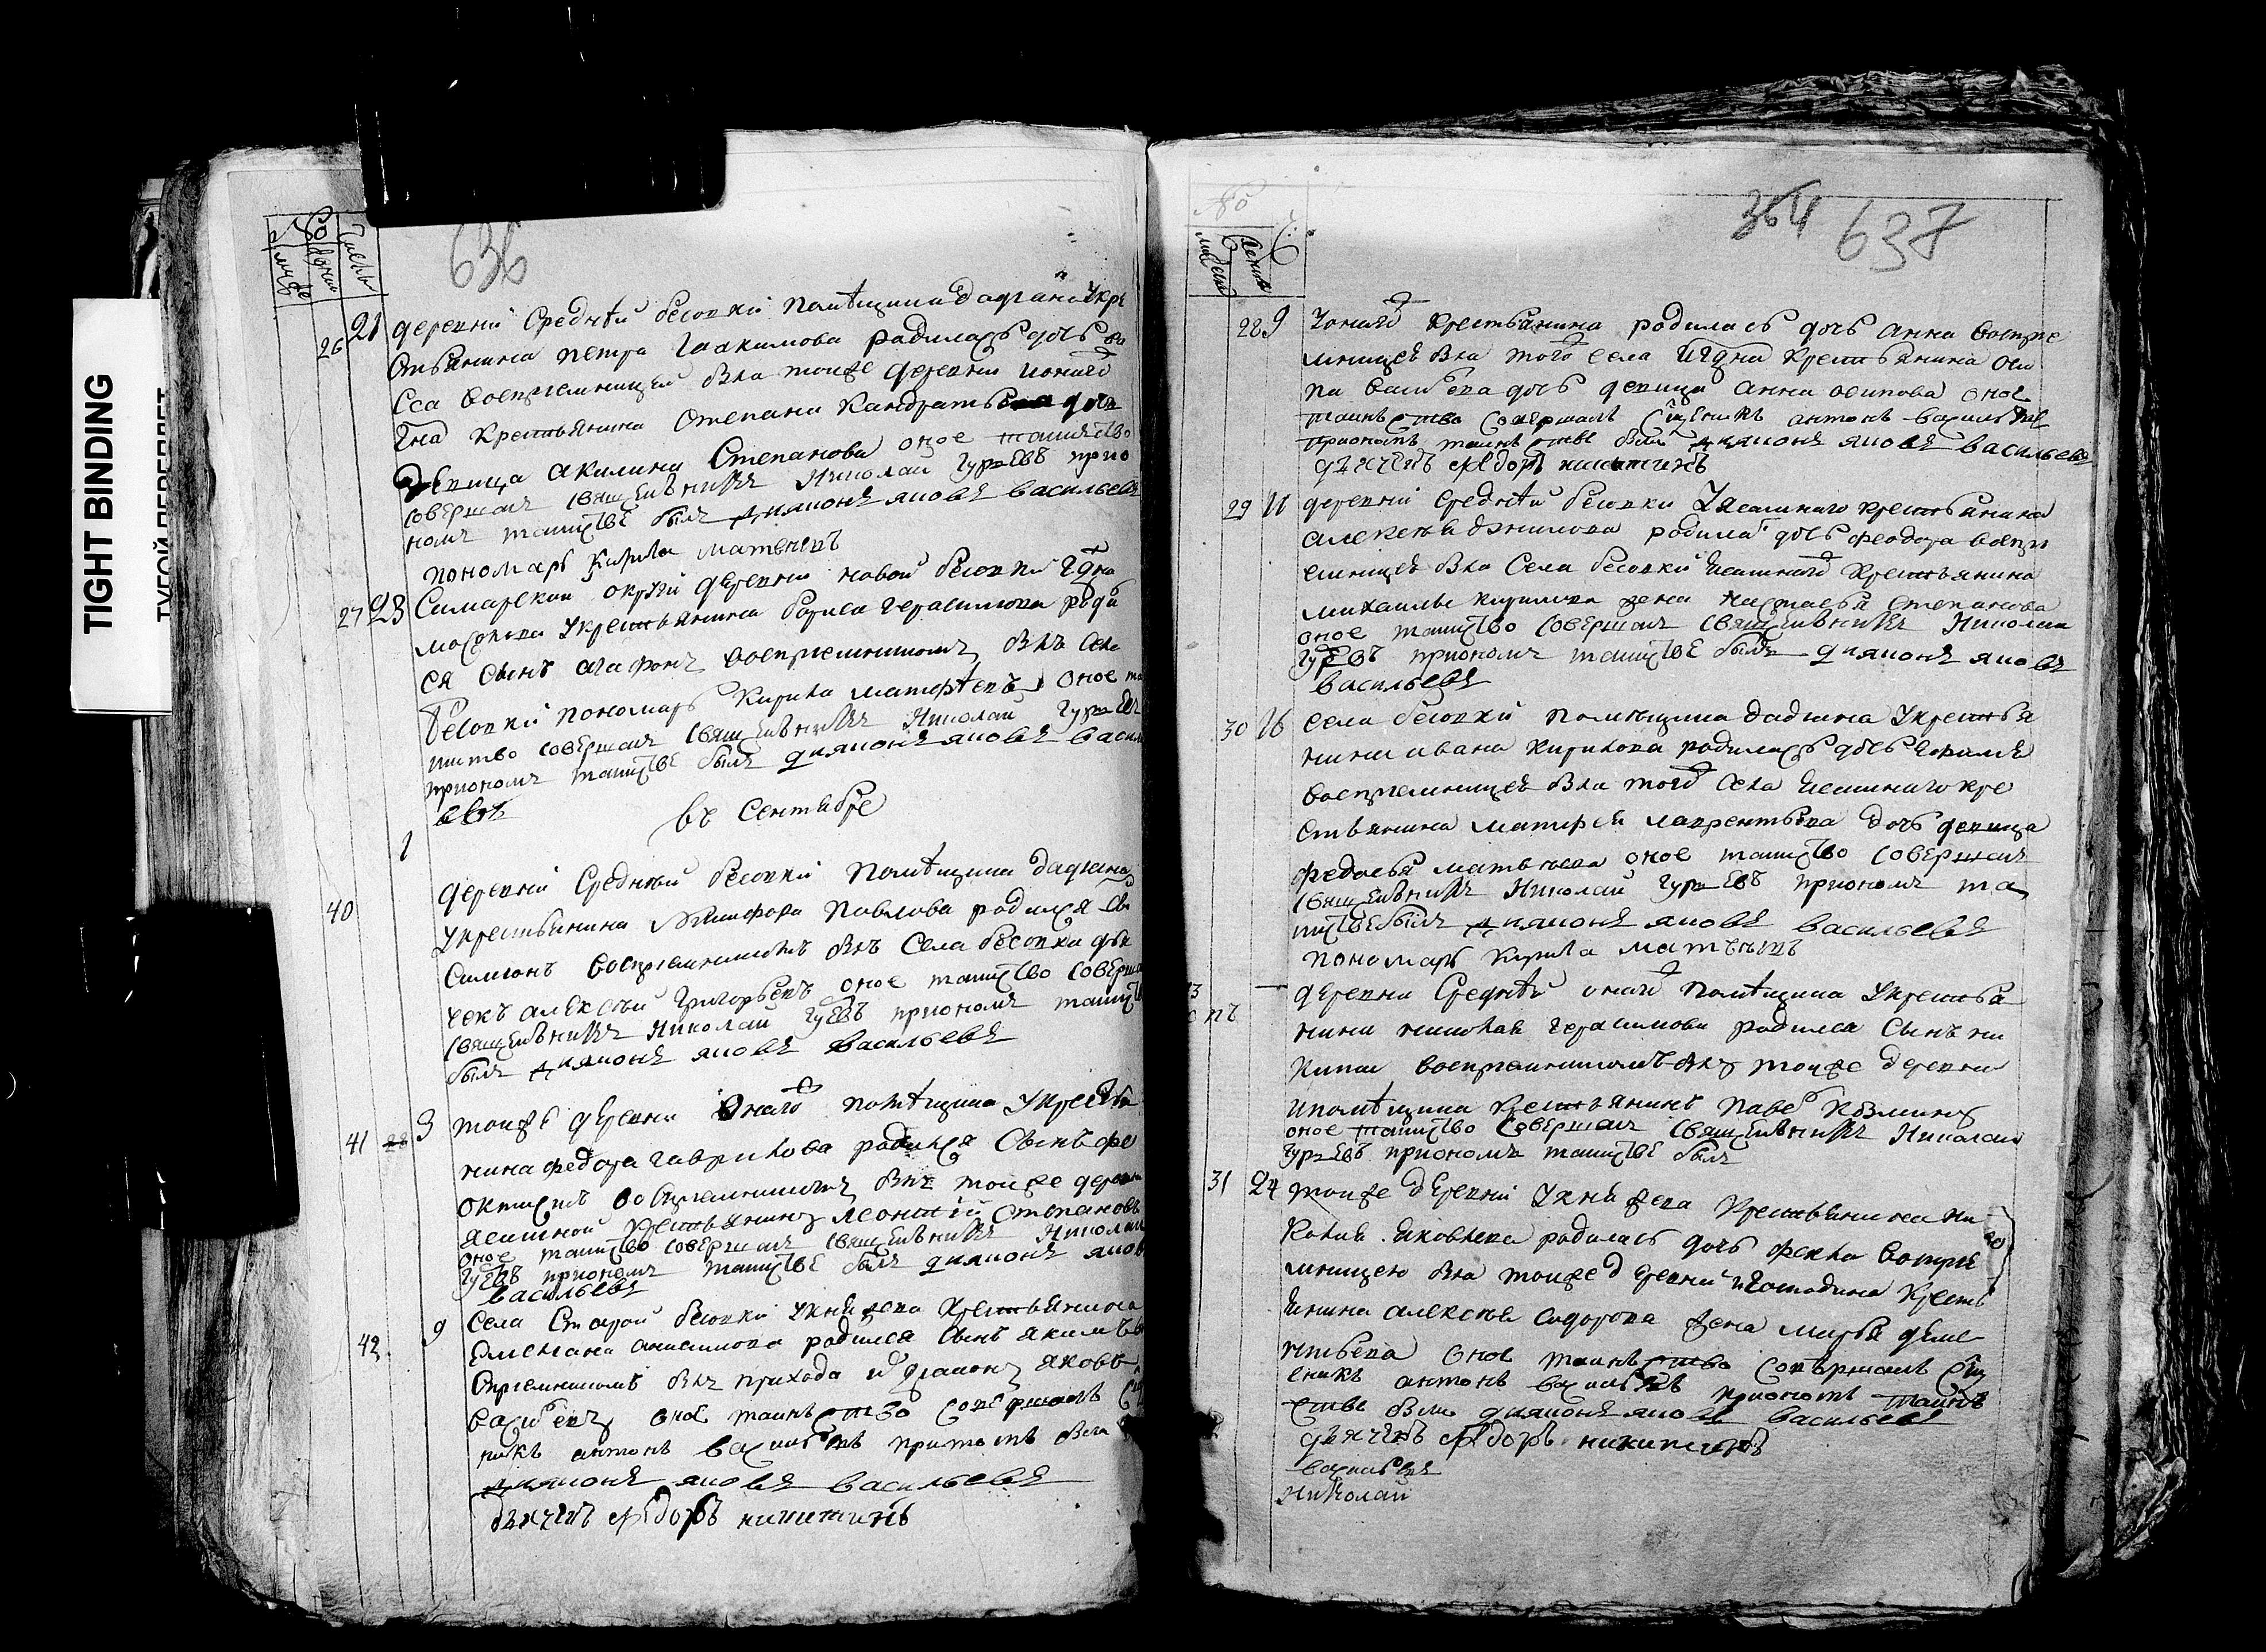 TIGHT BINDING
ТУГОЙ ПЕРЕПЛЕТ
636
26 21 деревни Среднѣй бесовки помѣщика дадгина Укре
стьянина петра Iоакимова родилась дочь
воспрiемницей была тоиже деревни
крестьянина степана кандратьева дочь
девица акилина степанова оное таинство
совершалъ священникъ Николай гурьевъ прио
номъ таинстве былъ дияконъ яковъ васильевъ
пономарь кирила матвеевъ
27 23 Самарской округи деревни новой бесовки Гдна
Укрестьянина бориса герасимова роди
ся сынъ воспрiемникомъ былъ села
бесовки пономарь кирила матфѣевъ оное та
инство совершалъ священникъ Николай гурьевъ
приономъ таинстве былъ дияконъ яковъ василь
евъ
въ сентябре
1
40 деревни Среднѣй бесовки помѣщика дадгина
Укрестьянина Никифора павлова родился сы
симионъ воспрiемникомъ былъ села бесовки дья
чекъ алексѣй григорьевъ оное таинство соверша
священникъ Николай гуревъ приономъ таинств
былъ дияконъ яковъ васильевъ
41 28 3 тоижъ деревни Онаго помѣщика Укрестья
нина федота гаврилова родился сынъ фе
октистъ воспрiемникомъ былъ тоиже деревни
ясашной крестьянинъ леонтiй степановъ
оное таинство совершалъ священникъ Николай
гуревъ приономъ таинстве былъ дияконъ яков
васильевъ
42 9 села Старой бесовки Укнязева крестьянина
Емельяна анисимова родился сынъ якимъ во
спрiемникомъ былъ прихода дiаконъ яковъ
васильевъ оное таинство совершалъ Сщ
никъ антонъ васильевъ притомъ были
дияконъ яковъ васильевъ
дьячекъ федоръ никитинъ
№
364 637
28 9 Уонаго крестьянина родилась дочь анна воспрiе
мницею была того села Игдна крестьянина оси
па васильева дочь девица анна осипова оное
таинство совершалъ Сщеникъ антонъ васильевъ
приономъ таинстве были дияконъ яковъ васильевъ
дьячекъ федоръ никитинъ
29 11 деревни Среднѣй бесовки Уясашнаго крестьянина
алексея данилова родилась дочь феодора воспрi
емницею была села бесовки ясашнаго крестьянина
михаилы кирилова жена настасья степанова
оное таинство совершалъ священникъ Николай
гурьевъ приономъ таинстве былъ дияконъ яковъ
васильевъ
30 16 села бесовки помѣщика дадгина Укрестья
нина ивана кирилова родилась дочь
воспрiемницею была того села ясашнаго кре
стьянина матфея лаврентьева дочь девица
федосья матвеева оное таинство совершалъ
священникъ Николай гурьевъ приономъ та
инстве былъ дияконъ яковъ васильевъ
пономарь кирила матвеевъ
деревни Среднѣй онаго помѣщика Укрестья
нина николая герасимова родился сынъ ни
кита воспрiемникомъ былъ тоиже деревни
ипомѣщика крестьянинъ павелъ козминъ
оное таинство совершалъ священникъ Николай
гурьевъ приономъ таинстве былъ
31 24 тоиже деревни Укнязева крестьянина ни
колая яковлева родилась дочь фекла воспрiе
мницею была тоиже деревни игосподина кресть
янина алексея сидорова жена марья деме
нтьева оное таинство совершалъ Сщ
еникъ антонъ васильевъ приономъ таинъ
стве были дияконъ яковъ васильевъ
дьячекъ федоръ никитинъ
васильевъ
николай